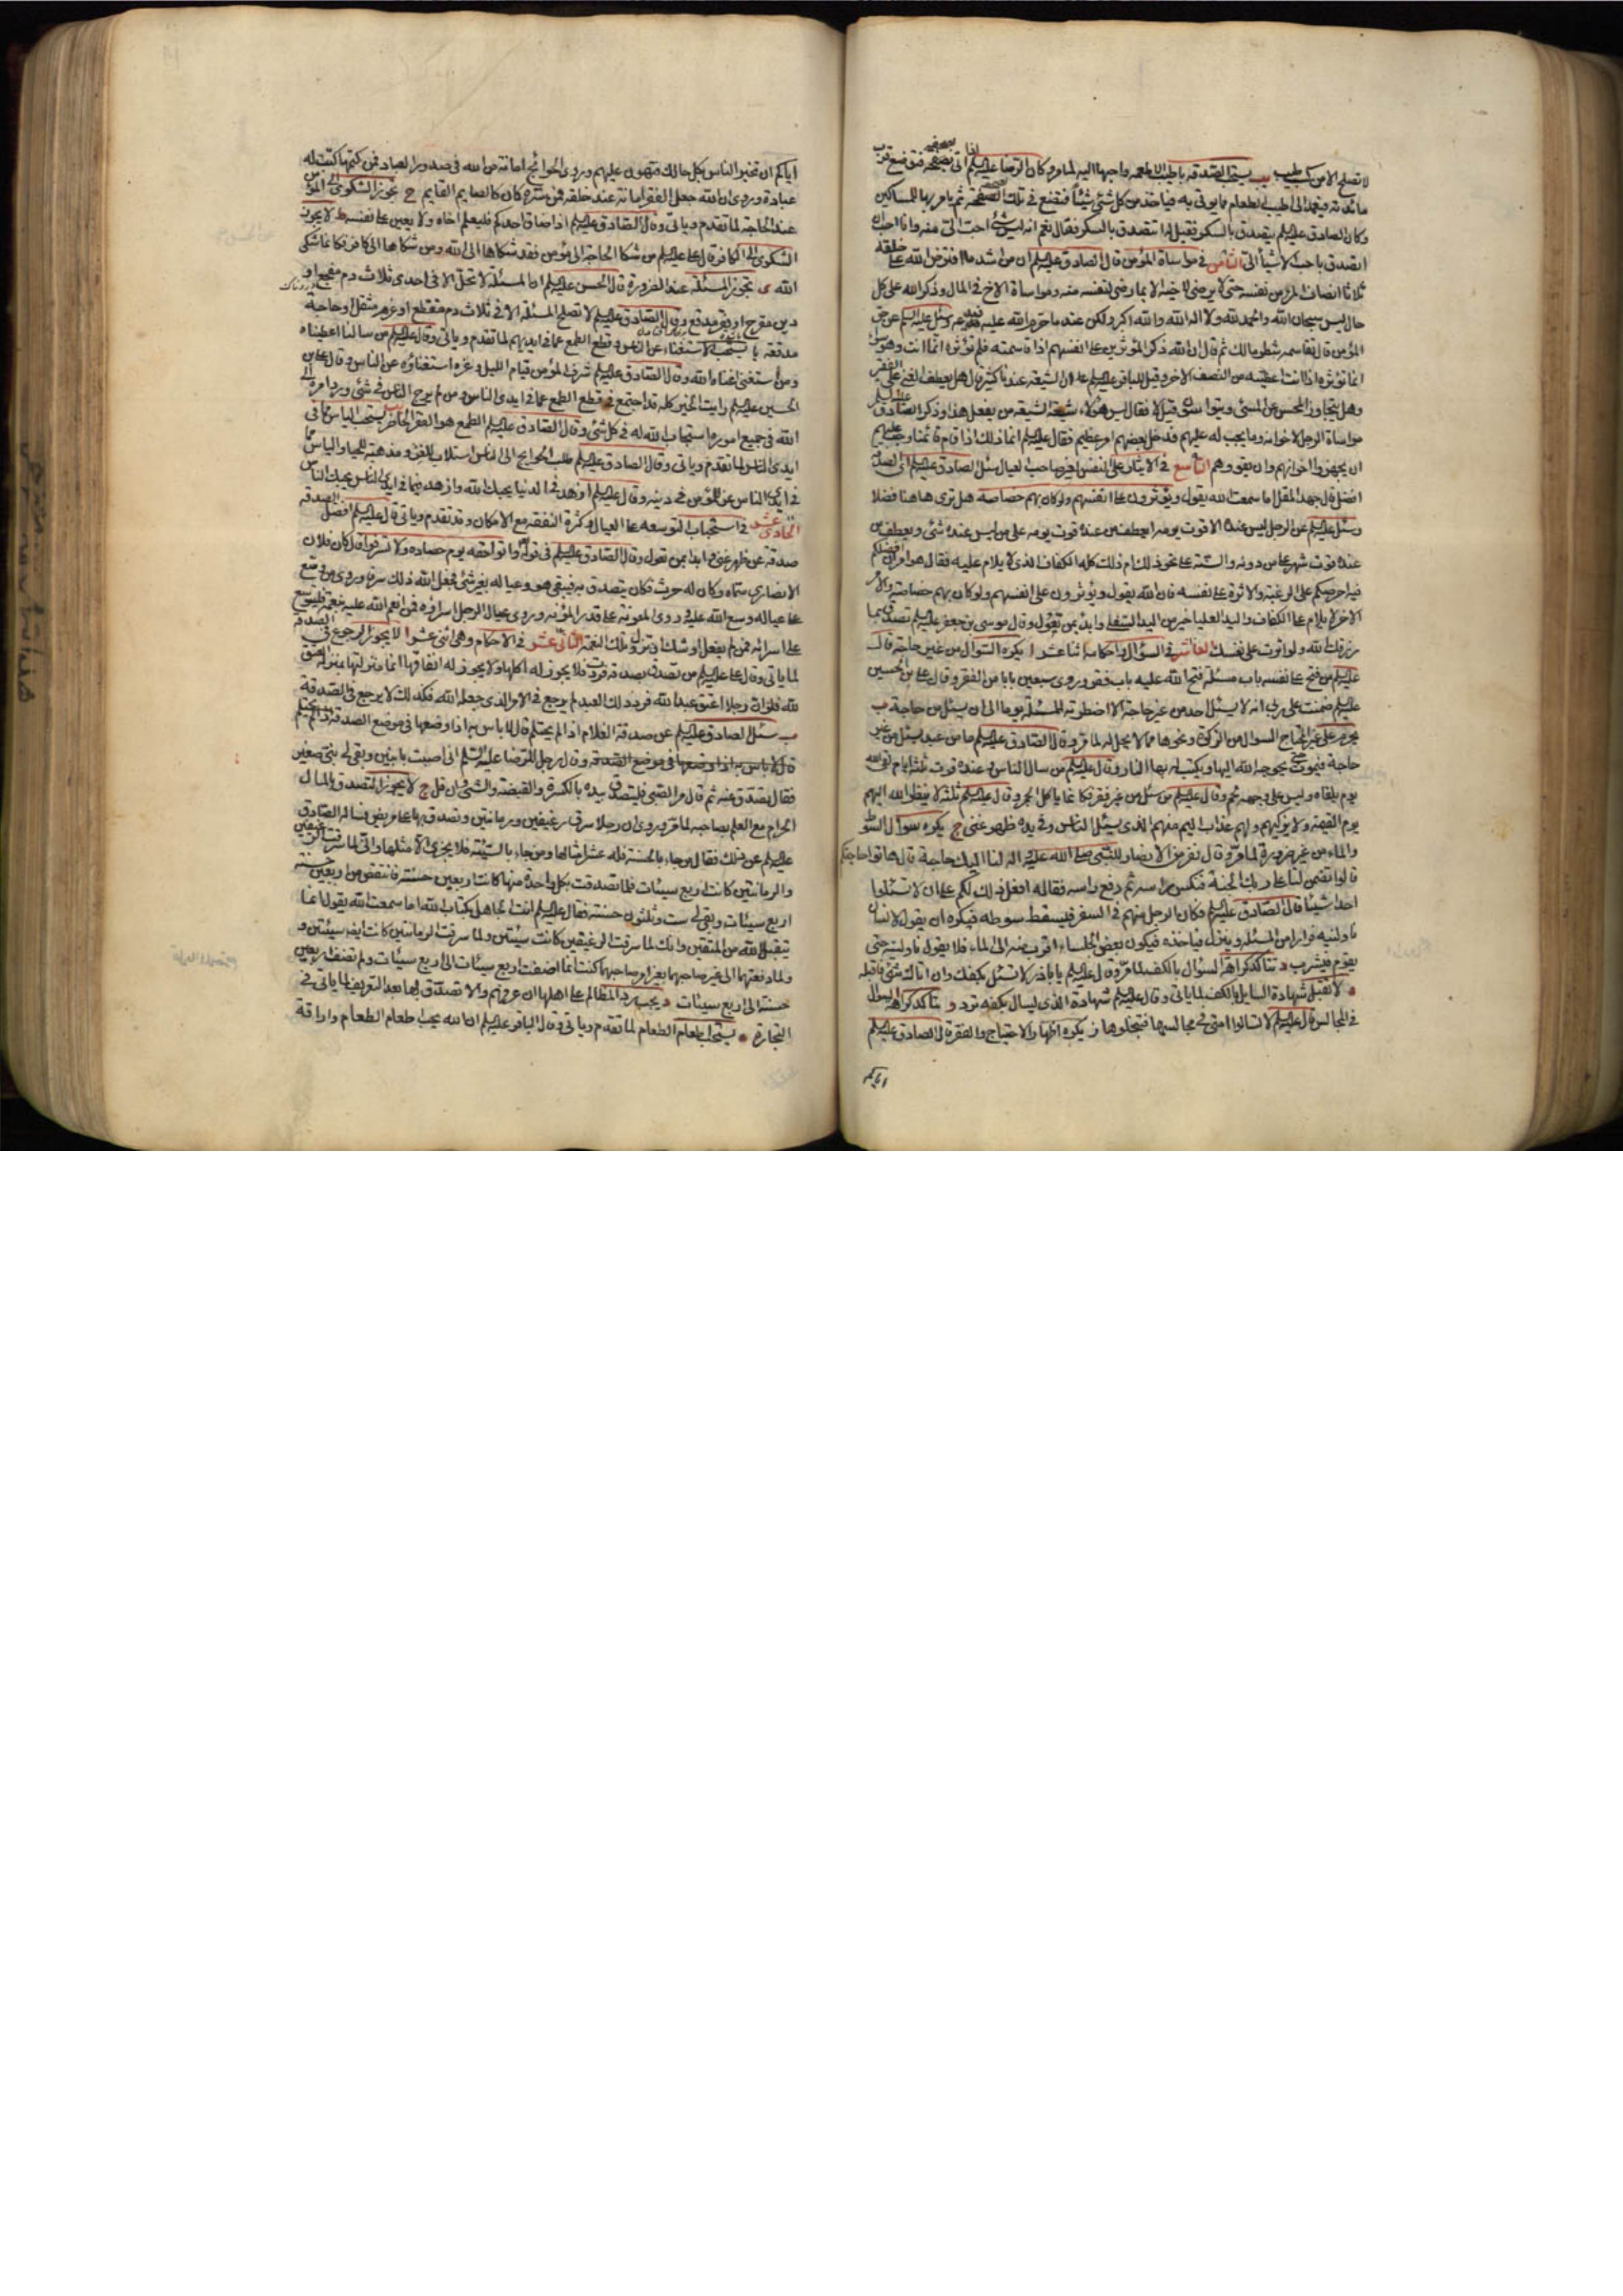 لا تصلح الا من كسب طيب يب يستحب الصدقة باطيب الاطعمة واحبها اليه لما مر وكان الرضا عليه السلم اذا اتى بصحفة فتوضع قرب
مائدته فيعمد الى اطيب الطعام مما يوتى به فياخذ من كل شئ شيئا فتضع في تلك الصحفة ثم يامر بها للمساكين
وكان الصادق عليه السلم يتصدق بالسكر فقيل له اتتصدق بالسكر فقال نعم انه ليس شئ احب الى منه وانا احب ان
اتصدق باحب الاشيأ الى الثامن في مواساة المؤمن قال الصادق عليه السلم ان من اشد ما افترض الله على خلقه
ثلاثا انصاف المؤمن من نفسه حتى لا يرضى لاخيه الا بما يرضى لنفسه منه ومواساة الاخ في المال وذكر الله على كل
حال ليس سبحان الله والحمد لله ولا اله الا الله والله اكبر ولكن عند ما حرم الله عليه فيدعه وسئل عليه السلم عن حق
المؤمن قال تقاسمه شطر مالك ثم قال ان الله ذكر المؤثرين على انفسهم اذا قاسمته فلم تؤثره انما انت وهو سواء
انما تؤثره اذا انت اعطيته من النصف الاخر وقيل للباقر عليه السلم ان الشيعة عندنا كثير قال هل يعطف الغنى على الفقير
وهل يتجاوز المحسن عن المسئ ويتواسون قيل لا فقال ليس هؤلاء شيعة الشيعة من يفعل هذا وذكر الصادق عليه السلم
مواساة الرجل لاخوانه وما يجب له عليهم فدخل بعضهم امر عظيم فقال عليه السلم انما ذلك اذا قام قائمنا وجب عليهم
ان يجهزوا اخوانهم وان يقووهم التاسع في الايثار على النفس لغير صاحب العيال سئل الصادق عليه السلم اى الصدقة
افضل قال جهد المقل اما سمعت الله يقول ويؤثرون على انفسهم ولو كان بهم خصاصة هل ترى هاهنا فضلا
وسئل عليه السلم عن الرجل ليس عنده الا قوت يومه ايعطف من عنده قوت يومه على من ليس عنده شئ ويعطف من
عنده قوت شهر على من دونه والسنة على نحو ذلك ام ذلك كله الكفاف الذى لا يلام عليه فقال هو امران افضلكم
فيه احرصكم على الرغبة والاثرة على نفسه فان الله يقول ويؤثرون على انفسهم ولو كان بهم خصاصة والامر
الاخر لا يلام على الكفاف واليد العليا خير من اليد السفلى وابدأ بمن تعول وقال موسى بن جعفر عليه السلم تصدق بما
رزقك الله ولو اثرت على نفسك العاشر في السؤال واحكامه اثنا عشر ا يكره السؤال من غير حاجة قال
عليه السلم من فتح على نفسه باب مسئلة فتح الله عليه باب فقر وروى سبعين بابا من الفقر وقال على بن الحسين
عليه السلم ضمنت على ربى انه لا يسئل احد من غير حاجة الا اضطرته المسئلة يوما الى ان يسئل من حاجة ب
يحرم على غير المحتاج السؤال من الزكوة ونحوها مما لا يحل له لما مر وقال الصادق عليه السلم ما من عبد يسئل من غير
حاجة فيموت حتى يحوجه الله اليها ويكتب له بها النار وقال عليه السلم من سال الناس وعنده قوت ثلثة ايام لقى الله
يوم يلقاه وليس على وجهه لحم وقال عليه السلم من سئل من غير فقر فكانما ياكل الجمر وقال عليه السلم ثلثة لا ينظر الله اليهم
يوم القيمة ولا يزكيهم ولهم عذاب اليم منهم الذى يسئل الناس وفي يده ظهر غنى ج يكره سؤال السوط
والماء من غير ضرورة لما مر وقال نفر من الانصار للنبى صلى الله عليه واله لنا اليك حاجة قال هاتوا حاجتكم
قالوا تضمن لنا على ربك الجنة فنكس راسه ثم رفع راسه فقال له افعل ذلك لكم على ان لا تسئلوا
احدا شيئا قال الصادق عليه السلم فكان الرجل منهم في السفر فيسقط سوطه فيكره ان يقول لانسان
ناولنيه فرارا من المسئلة وينزل فياخذه فيكون بعض الجلساء اقرب منه الى الماء فلا يقول ناولنى حتى
يقوم فيشرب د تتاكد كراهة السؤال بالكف لما مر وقال عليه السلم يا باذر لا تسئل بكفك وان اتاك شئ فاقبله
ه لا تقبل شهادة السايل بالكف لما ياتى وقال عليه السلم شهادة الذى يسال بكفه ترد و يتاكد كراهة السؤال
في المجالس قال عليه السلم لا تسالوا امتى في مجالسها فتبخلوها ز يكره اظهار الاحتياج والفقر قال الصادق عليه السلم
اياكم
اياكم ان تخبر الناس بكل حالك فتهون عليهم وروى الحوائج امانة من الله في صدور العباد فمن كتمها كتبت له
عبادة وروى ان الله جعل الفقر امانة عند خلقه فمن ستره كان كالصايم القايم ح تجوز الشكوى الى المؤمن
عند الحاجة لما تقدم وياتى وقال الصادق عليه السلم اذا ضاق احدكم فليعلم اخاه ولا يعين على نفسه ط لا يجوز
الشكوى الى الكافر قال على عليه السلم من شكا الحاجة الى مؤمن فقد شكاها الى الله ومن شكاها الى كافر فكانما شكى
الله ى تجوز المسئلة عند الضرورة قال الحسن عليه السلم ان المسئلة لا تحل الا في احدى ثلاث دم مفجع او
دين مقرح او فقر مدقع وقال الصادق عليه السلم لا تصلح المسئلة الا في ثلاث دم منقطع او غرم مثقل او حاجة
مدقعة يا يستحب الاستغناء عن الناس وقطع الطمع عما في ايديهم لما تقدم وياتى وقال عليه السلم من سالنا اعطيناه
ومن استغنى اغناه الله وقال الصادق عليه السلم شرف المؤمن قيام الليل وعزه استغناؤه عن الناس وقال على بن
الحسين عليه السلم رايت الخير كله قد اجتمع في قطع الطمع عما في ايدى الناس ومن لم يرج الناس في شئ ورد امره الى
الله في جميع اموره استجاب الله له في كل شئ وقال الصادق عليه السلم الطمع هو الفقر الحاضر يب يستحب الياس مما في
ايدى الناس لما تقدم وياتى وقال الصادق عليه السلم طلب الحوايج الى الناس استلاب للعز ومذهبة للحياء والياس مما
في ايدى الناس عز للمؤمن في دينه وقال عليه السلم ازهد في الدنيا يحبك الله وازهد فيما في ايدى الناس يحبك الناس
الحادى عشر في استحباب التوسعة على العيال وكثرة النفقة مع الامكان وقد تقدم وياتى قال عليه السلم افضل الصدقة
صدقة عن ظهر غنى وابدا بمن تعول وقال الصادق عليه السلم في قوله واتوا حقه يوم حصاده ولا تسرفوا قال كان فلان
الانصارى سماه وكان له حرث فكان يتصدق به فيبقى هو وعياله بغير شئ فجعل الله ذلك سرفا وروى من وسع
على عياله وسع الله عليه وروى المعونة على قدر المؤنة وروى عيال الرجل اسراؤه فمن انعم الله عليه بنعمة فليوسع
على اسرائه فمن لم يفعل اوشك ان تزول تلك النعمة الثانى عشر في الاحكام وهى اثنى عشر ا لا يجوز الرجوع في الصدقة
لما ياتى وقال على عليه السلم من تصدق بصدقة فردت فلا يجوز له اكلها ولا يجوز له انفاقها انما منزلتها بمنزلة العتق
لله فلو ان رجلا اعتق عبدا لله فرد ذلك العبد لم يرجع في الامر الذى جعله الله فكذلك لا يرجع في الصدقة
ب سئل الصادق عليه السلم عن صدقة الغلام اذا لم يحتلم قال لا باس به اذا وضعها في موضع الصدقة
قال لا باس به اذا وضعها في موضع الصدقة وقال رجل للرضا عليه السلم انى اصبت بابنين وبقى لى بنى صغير
فقال تصدق عنه ثم قال مر الصبى فليتصدق بيده بالكسرة والقبضة والشئ وان قل ج لا يجوز التصدق بالمال
الحرام مع العلم بصاحبه لما مر وروى ان رجلا سرق رغيفين ورمانتين وتصدق بها على مريض فساله الصادق
عليه السلم عن ذلك فقال من جاء بالحسنة فله عشر امثالها ومن جاء بالسيئة فلا يجزى الا مثلها وانى لما سرقت الرغيفين
والرمانتين كانت اربع سيئات فلما تصدقت بكل واحدة منها كانت اربعين حسنة فانتقص من اربعين حسنة
اربع سيئات وبقى لى ست وثلثون حسنة فقال عليه السلم انت الجاهل بكتاب الله اما سمعت الله يقول انما
يتقبل الله من المتقين وانك لما سرقت الرغيفين كانت سيئتين ولما سرقت الرمانتين كانت ايضه سيئتين و
ولما دفعتهما الى غير صاحبهما بغير امر صاحبهما كنت انما اضفت اربع سيئات الى اربع سيئات ولم تضف اربعين
حسنة الى اربع سيئات د يجب رد المظالم على اهلها ان عرفهم والا تصدق بها بعد التعريف لما ياتى في
التجارة ه يستحب اطعام الطعام لما تقدم وياتى وقال الباقر عليه السلم ان الله يحب اطعام الطعام واراقة